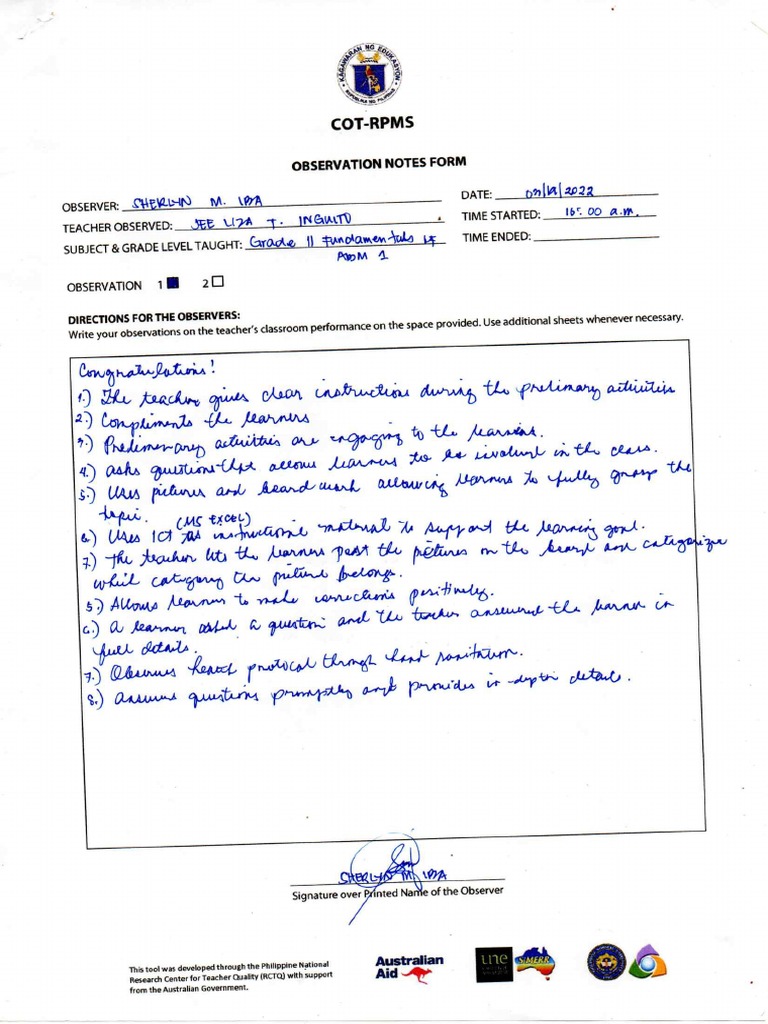 KAGAWARAN NG EDUKASYON
REPUBLIKA NG PILIPINAS
COT-RPMS
OBSERVATION NOTES FORM
OBSERVER: SHERLYN M. IBA
DATE: 2022
TEACHER OBSERVED: JEE LIZA T. INGUITO
TIME STARTED: 00 a.m.
SUBJECT & GRADE LEVEL TAUGHT: Grade 11 Fundamentals of
ABM 1
TIME ENDED:
OBSERVATION 1 2
DIRECTIONS FOR THE OBSERVERS:
Write your observations on the teacher's classroom performance on the space provided. Use additional sheets whenever necessary.
Congratulations!
1.) The teacher gives clear instructions during the prelimary activities
2.) Compliments the learners
3.) Preliminary activities are engaging to the learners.
4.) asks questions that allows learners to be involved in the class.
5.) Uses pictures and board work allowing learners to fully grasp the
topic.
(MS EXCEL)
6.) Uses ICT as instructional material to support the learning goal.
7.) The teacher lets the learners post the pictures on the board and categorize
which category the picture belongs.
5.) Allows learner to make corrections positively.
6.) A learner asked a question and the teacher answered the learner in
full details.
7.) Observes health protocol through hand sanitation.
8.) answers questions promptly and provides in-depth details.
SHERLYN M. IBA
Signature over Printed Name of the Observer
This tool was developed through the Philippine National
Research Center for Teacher Quality (RCTQ) with support
from the Australian Government.
Australian
Aid
une
SiMERR